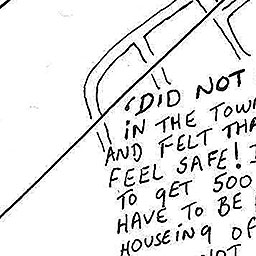 'DID NOT
IN THE TOWN
AND FELT THA
FEEL SAFE! I
TO GET 500
HAVE TO BE
HOUSEING OF
NOT